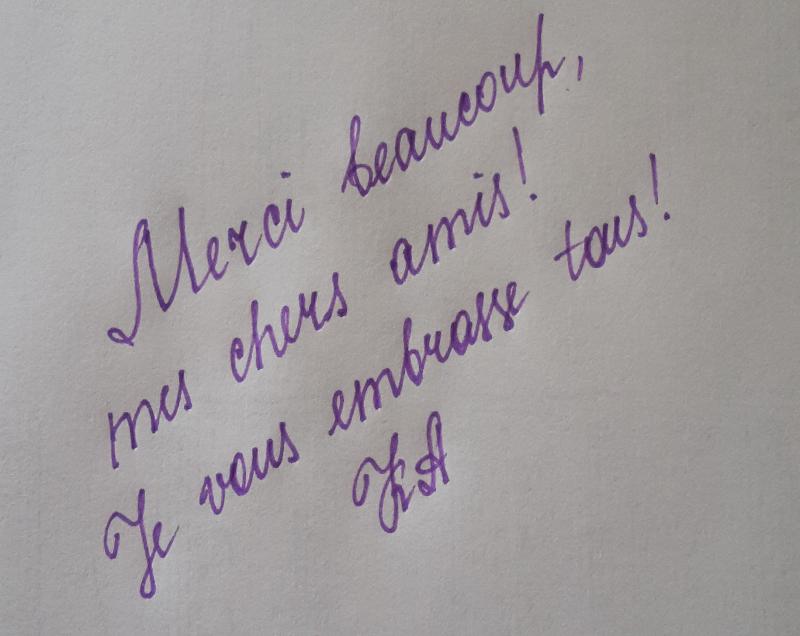 Merci beaucoup,
mes chers amis!
Je vous embrasse tous!